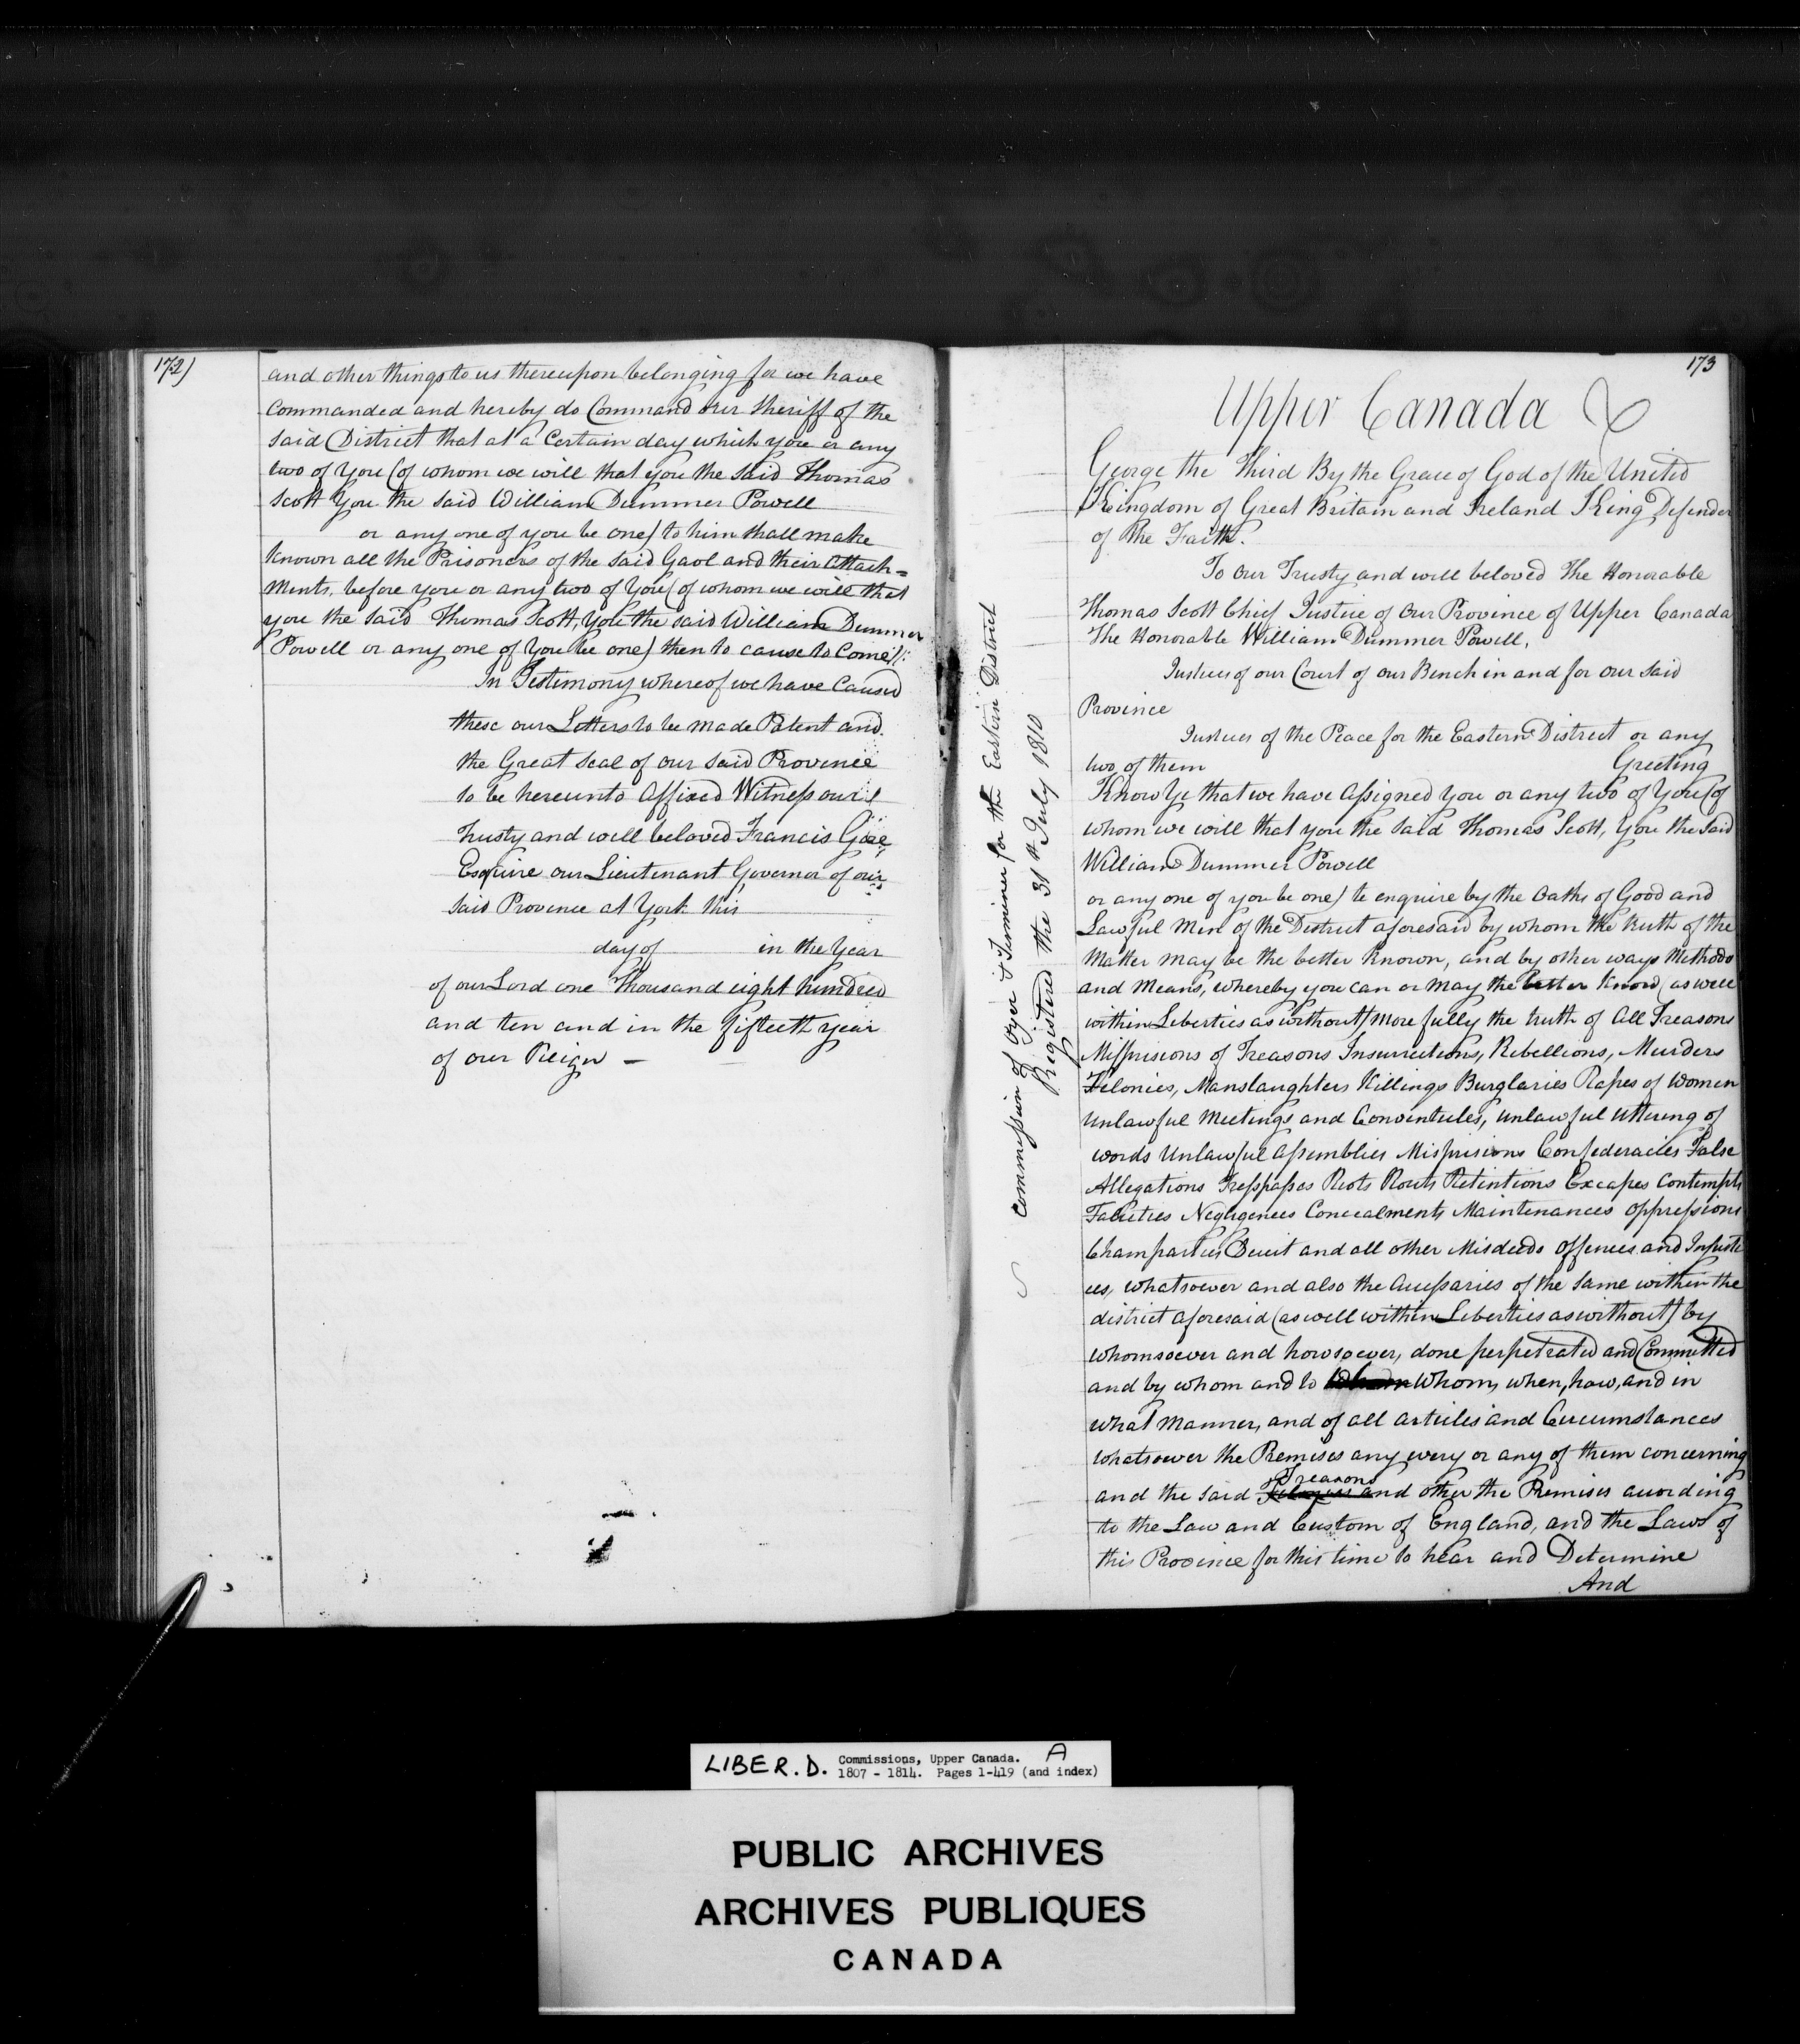 172)
and other things to us thereupon belonging for we have
Commanded and hereby do Command our Sheriff of the
said District that at a Certain day which you or any
two of You (of whom we will that you the said Thomas
Scott You the said William Dummer Powell
or any one of you be one) to him shall make
known all the Prisoners of the said Gaol and their Attach=
ments, before you or any two of You (of whom we will that
you the said Thomas Scott, You the said William Dummer
Powell or any one of You be one) then to cause to Come//:
In Testimony whereof we have Caused
these our Letters to be made Patent and
the Great Seal of our said Province
to be hereunto Affixed Witness our
trusty and well beloved Francis Gore
Esquire our Lieutenant Governor of our
said Province at York this
day of in the Year
of our Lord one Thousand eight hundred
and ten and in the fiftieth year
of our Reign —
173
Upper Canada
George the Third By the Grace of God of the United
Kingdom of Great Britain and Ireland King Defender
of the Faith.
To Our Trusty and well beloved The Honorable
Thomas Scott Chief Justice of Our Province of Upper Canada
The Honorable William Dummer Powell,
Justices of our Court of our Bench in and for our said
Province
Justices of the Peace for the Eastern District or any
two of them Greeting
Know Ye that we have Assigned You or any two of You (of
whom we will that you the said Thomas Scott, You the said
William Dummer Powell
or any one of you be one) to enquire by the Oaths of Good and
Lawful Men of the District aforesaid by whom the truth of the
Matter may be the better Known, and by other ways Methods
and Means, whereby you can or may the better Know (as well
within Liberties as without) more fully the truth of All Treasons
Misprisions of Treasons Insurrections, Rebellions, Murders
Felonies, Manslaughters Killings Burglaries Rapes of Women
Unlawful Meetings and Conventicles, unlawful Uttering of
words Unlawful Assemblies Misprisions Confederacies False
Allegations Tresspasses Riots Routs Retentions Excapes Contempts
Falsities Negligences Concealments Maintenances Oppressions
Champarties Deceit and all other Misdeeds Offences and Injusti
ces, whatsoever and also the Accessaries of the Same within the
district aforesaid (as well within Liberties as without) by
whomsoever and howsoever, done perpetrated and Committed
and by whom and to whom Whom, when, how, and in
what Manner, and of all articles and Circumstances
whatsoever the Premises any every or any of them concerning
Treasons
and the said Felonies and other the Premises according
to the Law and Custom of England, and the Laws of
this Province for this time to hear and Determine
And
Commission of Oyer & Terminer for the Eastern District
Registered the 31st July 1810
LIBER. D. Commissions, Upper Canada. A
1807 - 1814. Pages 1-419 (and index)
PUBLIC ARCHIVES
ARCHIVES PUBLIQUES
CANADA